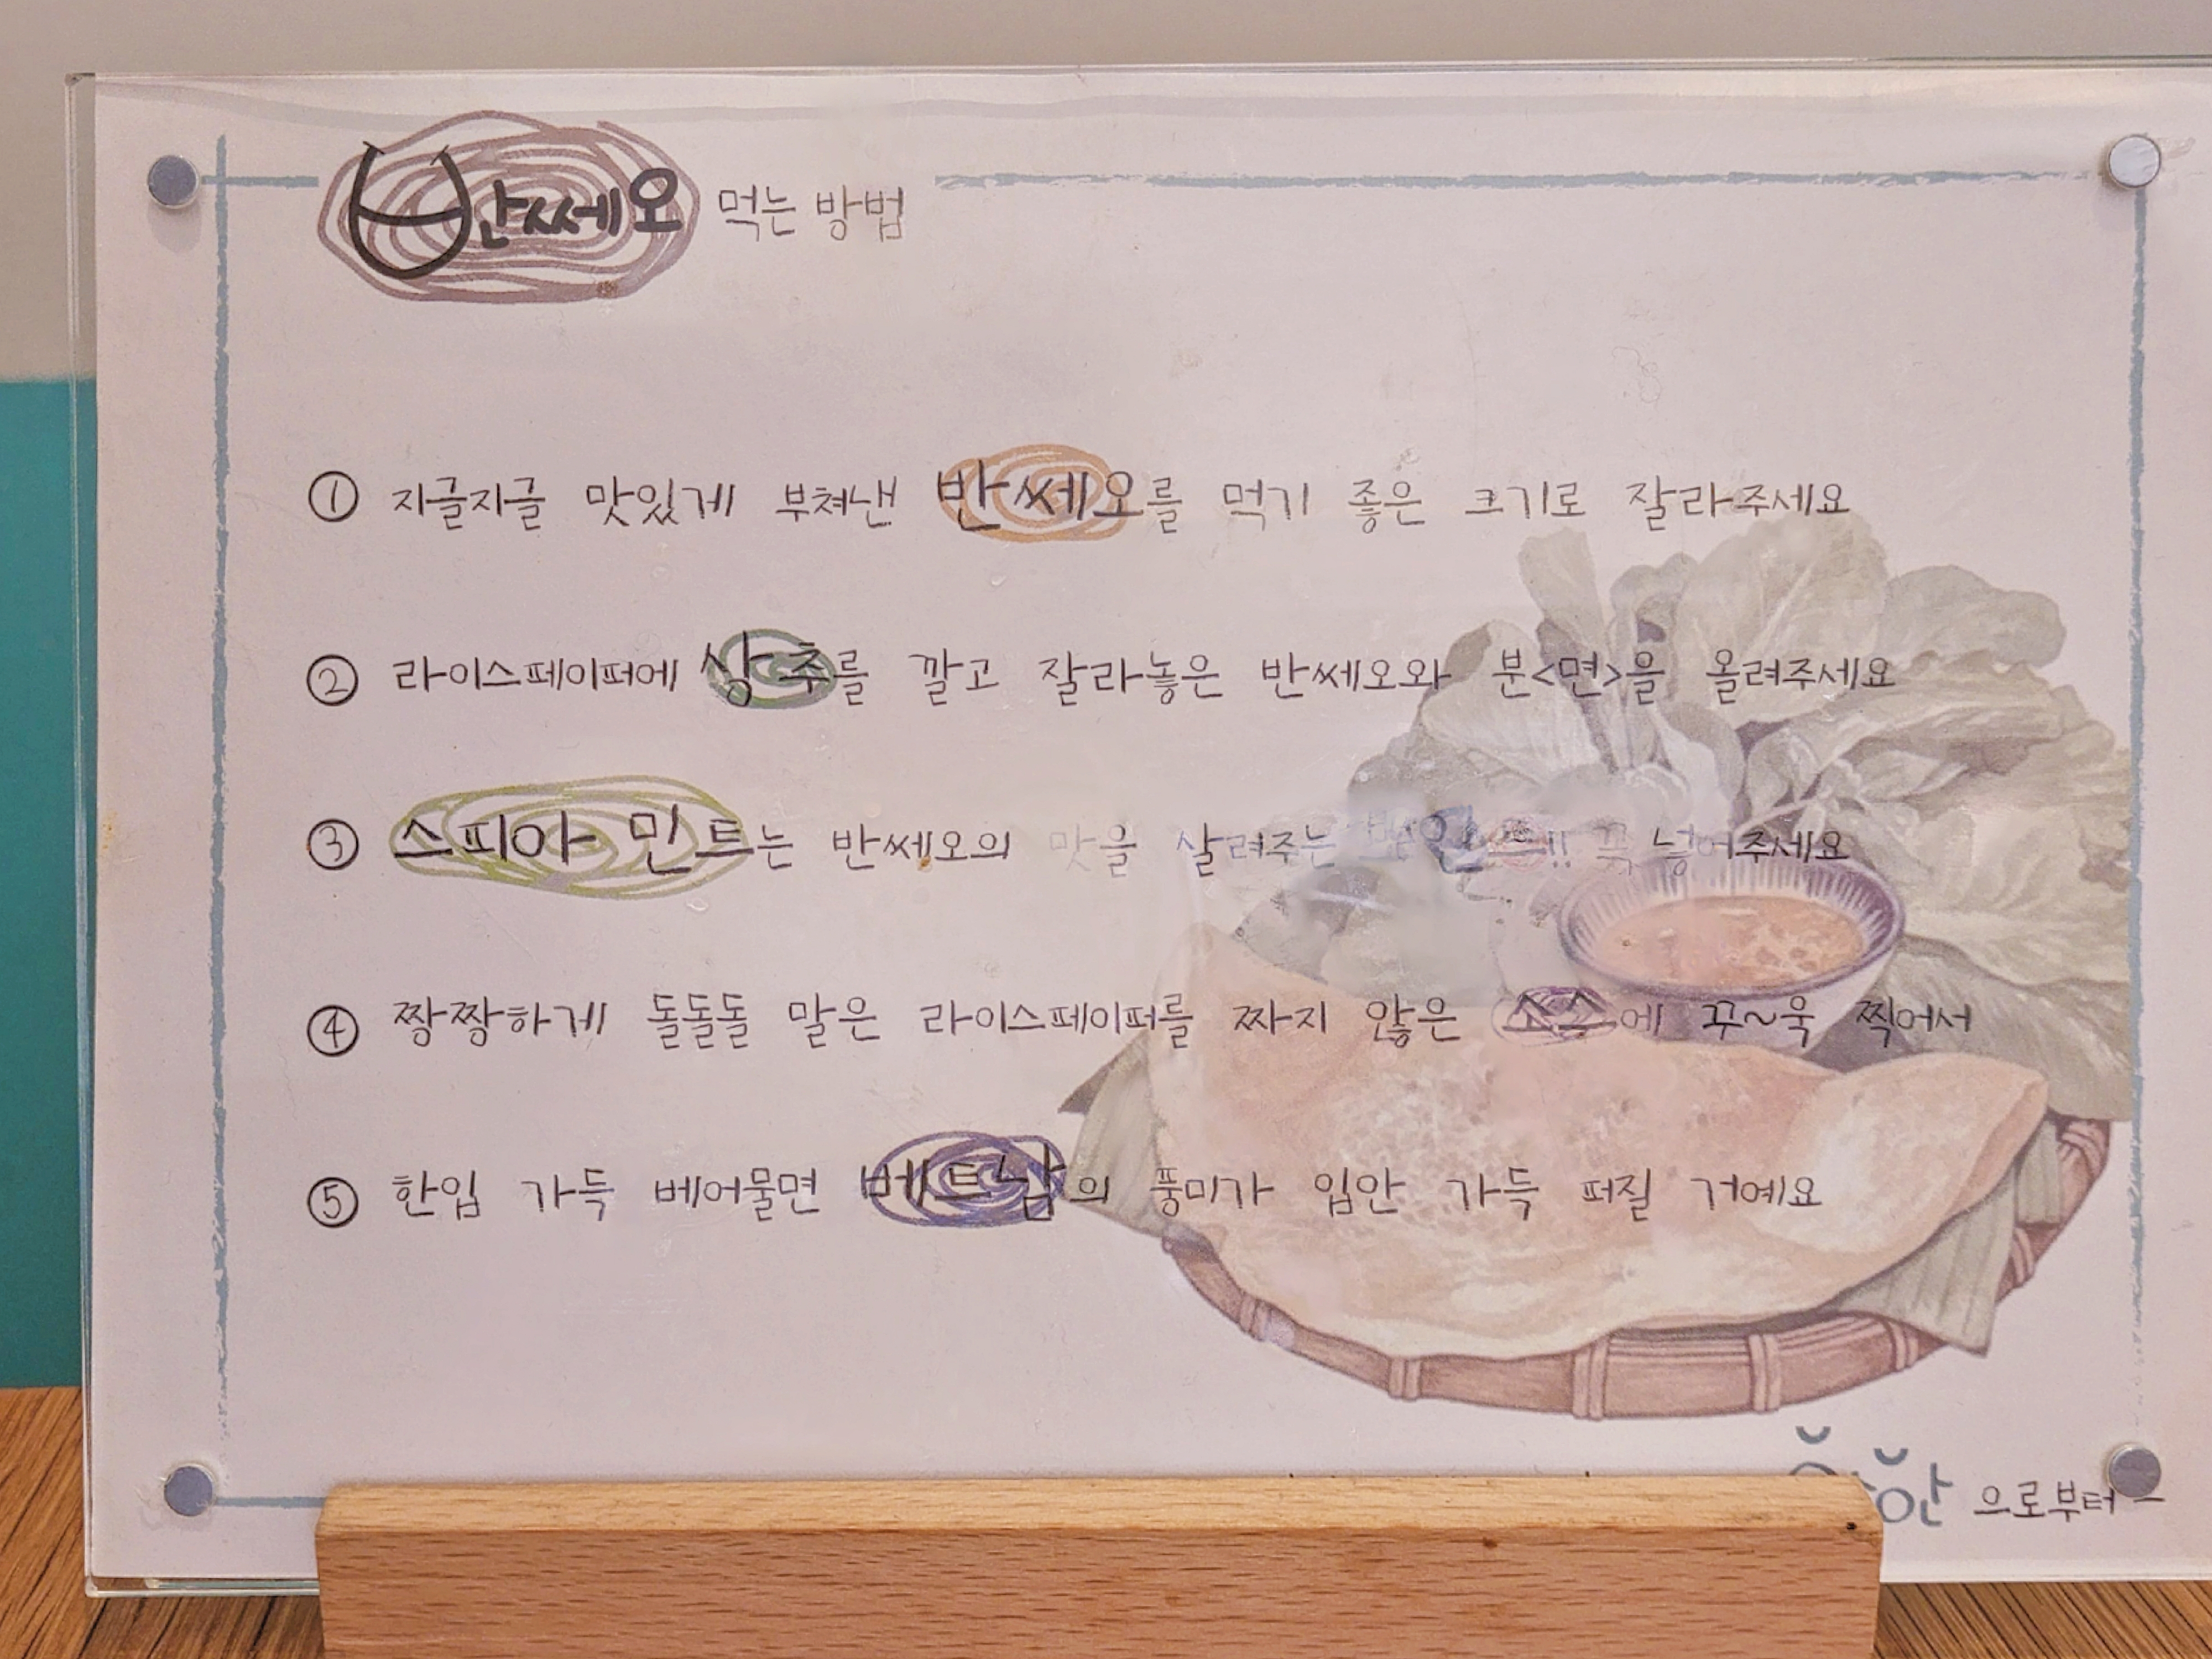 반쎄오 먹는 방법
① 지글지글 맛있게 부쳐낸 반쎄오를 먹기 좋은 크기로 잘라주세요
② 라이스페이퍼에 상추를 깔고 잘라놓은 반쎄오와 분<면>을 올려주세요
③ 스피아 민트는 반쎄오의 맛을 살려주는 꼭 넣어주세요
④ 짱짱하게 돌돌돌 말은 라이스페이퍼를 짜지 않은 소스에 꾸~욱 찍어서
⑤ 한입 가득 베어물면 베트남의 풍미가 입안 가득 퍼질 거예요
으로부터 -